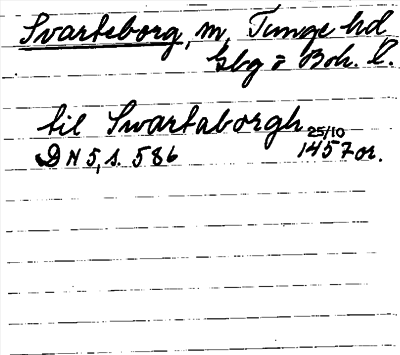 Svarteborg, m. Tunge hd
Gbg o Boh. l.
til Swartaborgh 25/10
DN 5, s. 586 1457 or.